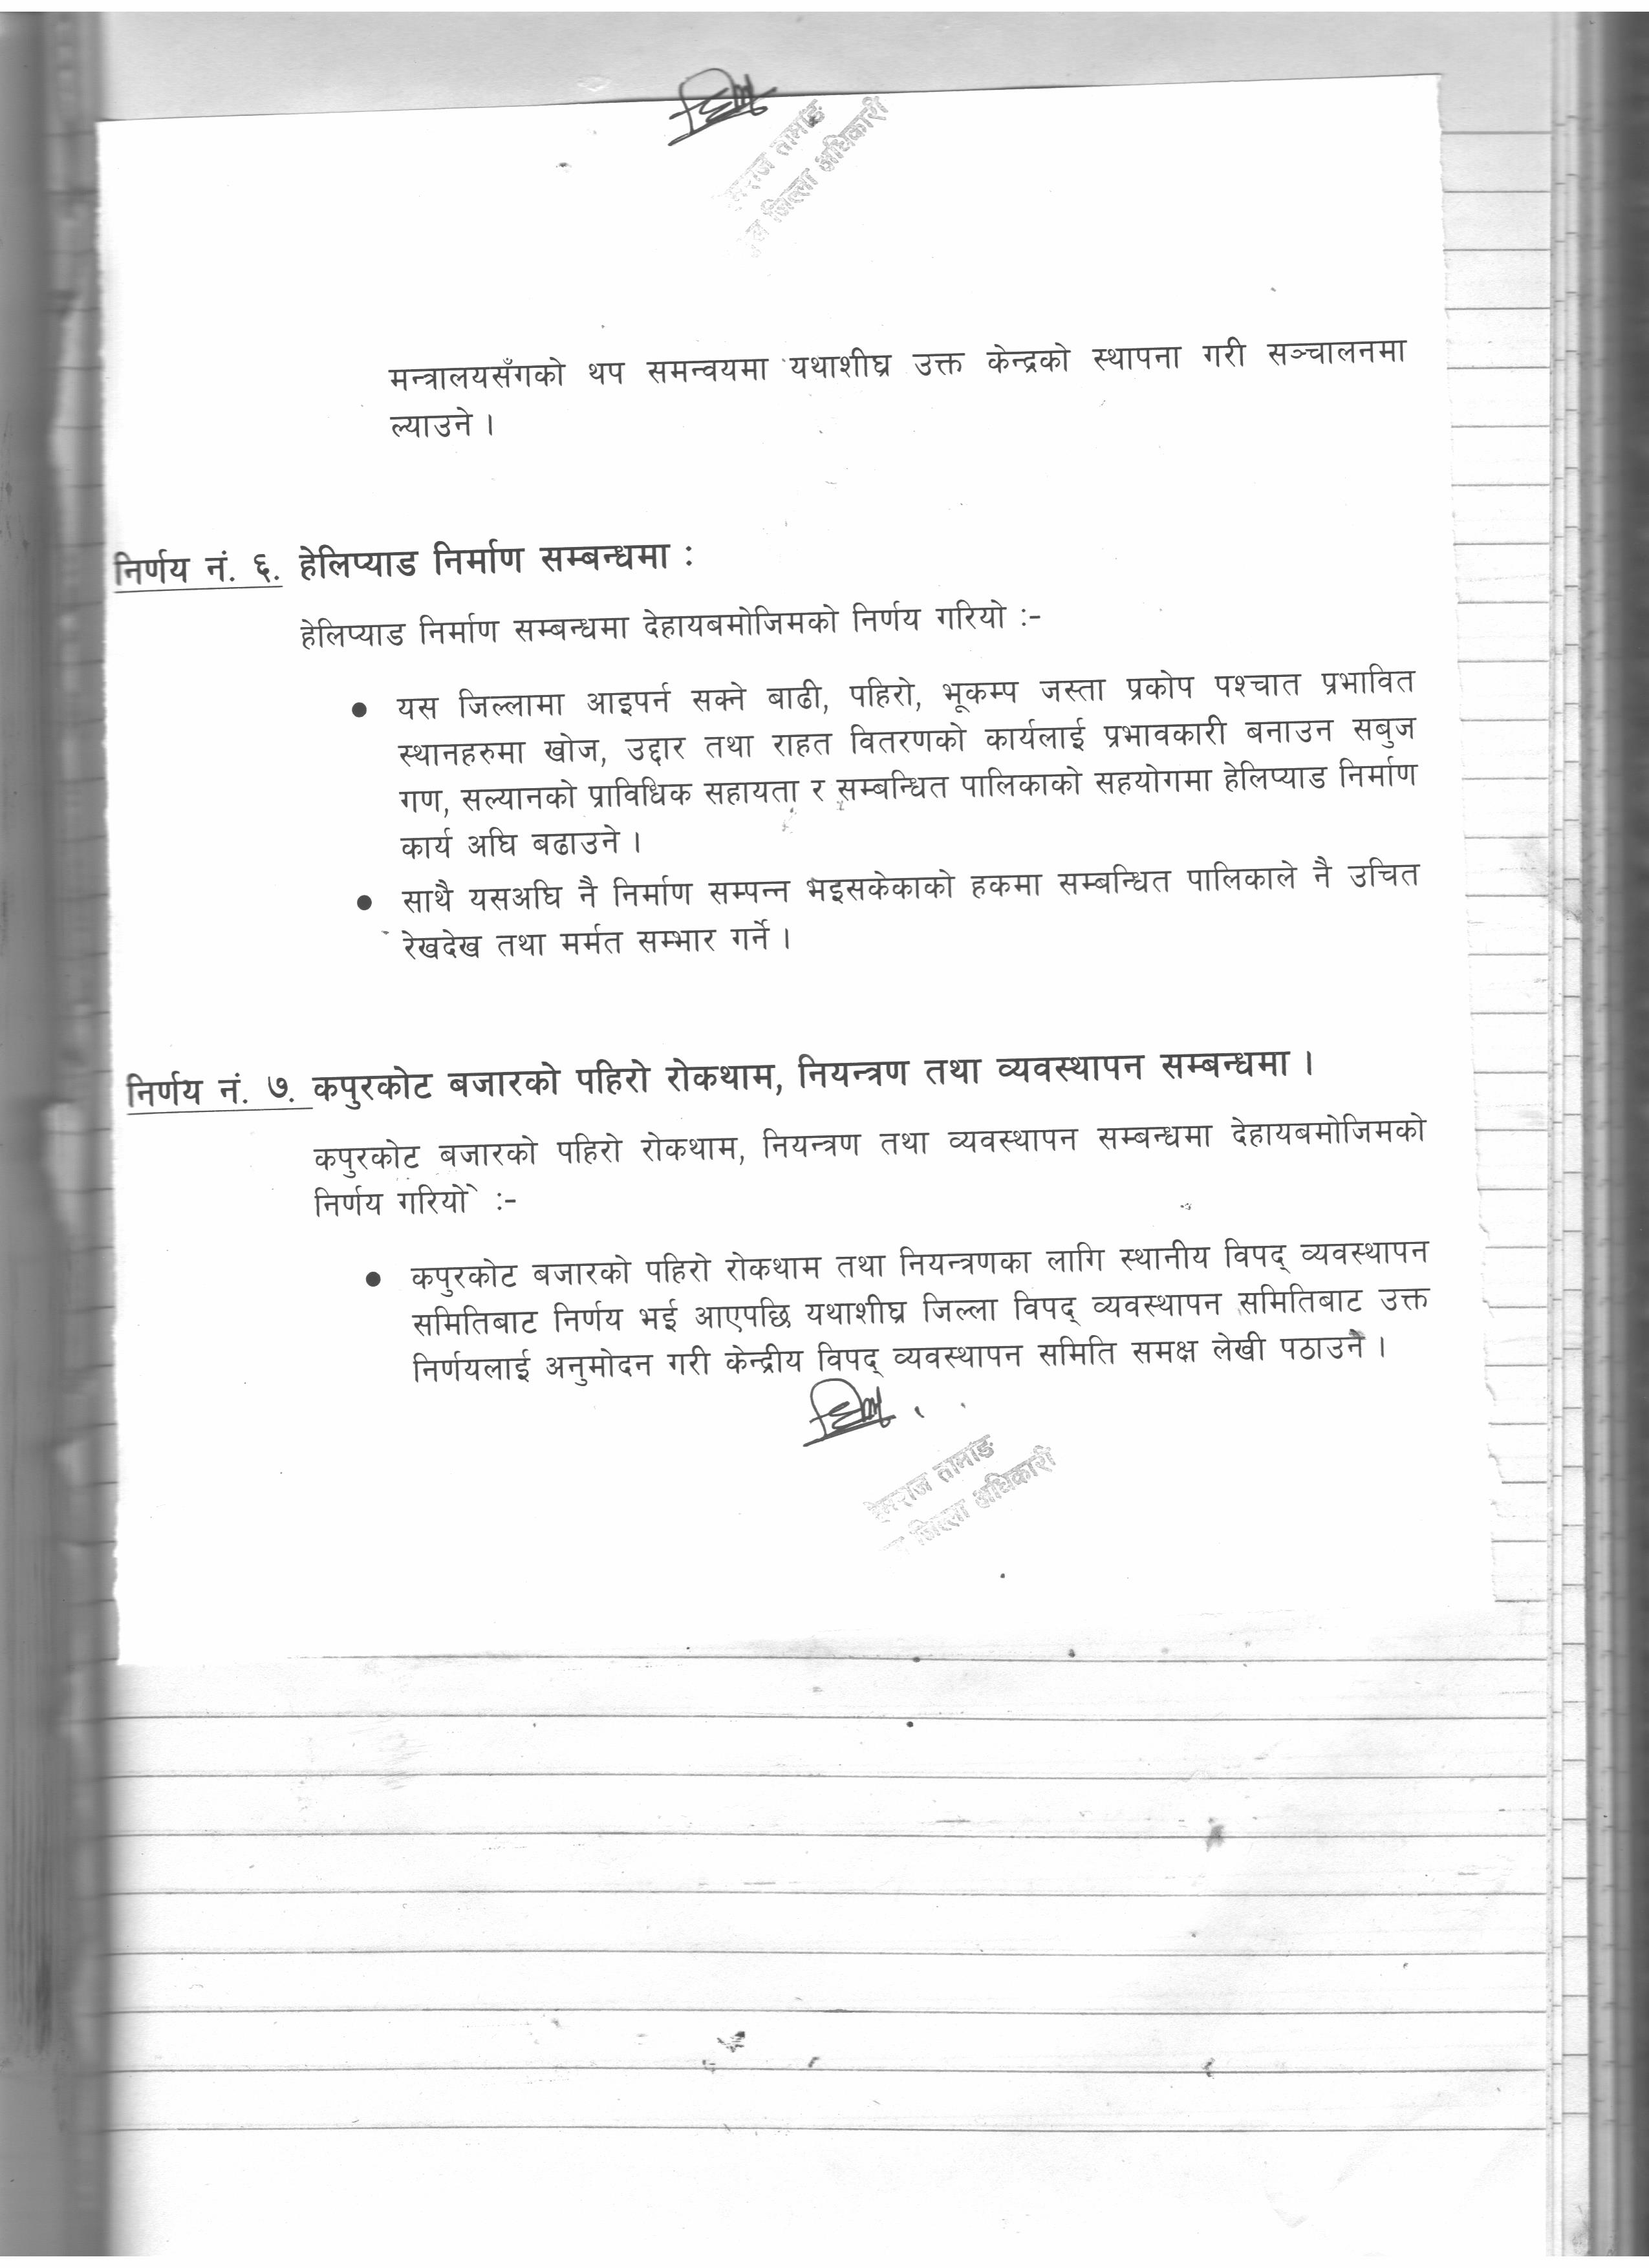 तामाङ
जिल्ला अधिकारी
मन्त्रालयसँगको थप समन्वयमा यथाशीघ्र उक्त केन्द्रको स्थापना गरी सञ्चालनमा
ल्याउने ।
निर्णय नं. ६. हेलिप्याड निर्माण सम्बन्धमा :
हेलिप्याड निर्माण सम्बन्धमा देहायबमोजिमको निर्णय गरियो :-
● यस जिल्लामा आइपर्न सक्ने बाढी, पहिरो, भूकम्प जस्ता प्रकोप पश्चात प्रभावित
स्थानहरुमा खोज, उद्दार तथा राहत वितरणको कार्यलाई प्रभावकारी बनाउन सबुज
गण, सल्यानको प्राविधिक सहायता र सम्बन्धित पालिकाको सहयोगमा हेलिप्याड निर्माण
कार्य अघि बढाउने ।
● साथै यसअघि नै निर्माण सम्पन्न भइसकेकाको हकमा सम्बन्धित पालिकाले नै उचित
रेखदेख तथा मर्मत सम्भार गर्ने ।
निर्णय नं. ७. कपुरकोट बजारको पहिरो रोकथाम, नियन्त्रण तथा व्यवस्थापन सम्बन्धमा ।
कपुरकोट बजारको पहिरो रोकथाम, नियन्त्रण तथा व्यवस्थापन सम्बन्धमा देहायबमोजिमको
निर्णय गरियो :-
● कपुरकोट बजारको पहिरो रोकथाम तथा नियन्त्रणका लागि स्थानीय विपद् व्यवस्थापन
समितिबाट निर्णय भई आएपछि यथाशीघ्र जिल्ला विपद् व्यवस्थापन समितिबाट उक्त
निर्णयलाई अनुमोदन गरी केन्द्रीय विपद् व्यवस्थापन समिति समक्ष लेखी पठाउने ।
तामाङ
जिल्ला अधिकारी